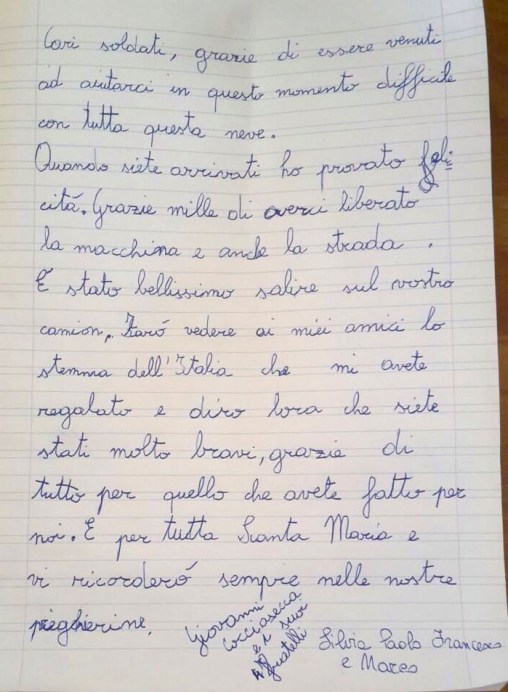 Cari soldati, grazie di essere venuti
ad aiutarci in questo momento difficile
con tutta questa neve.
Quando siete arrivati ho provato feli=
cità. Grazie mille di averci liberato
la macchina e anche la strada.
È stato bellissimo salire sul vostro
camion. Farò vedere ai miei amici lo
stemma dell'Italia che mi avete
regalato e dirò loro che siete
stati molto bravi, grazie di
tutto per quello che avete fatto per
noi. E per tutta Santa Maria e
vi ricorderò sempre nelle nostre
preghierine.
Giovanni
Cocciasecca
e i suoi
fratelli
Silvia Paolo Francesco
e Marco